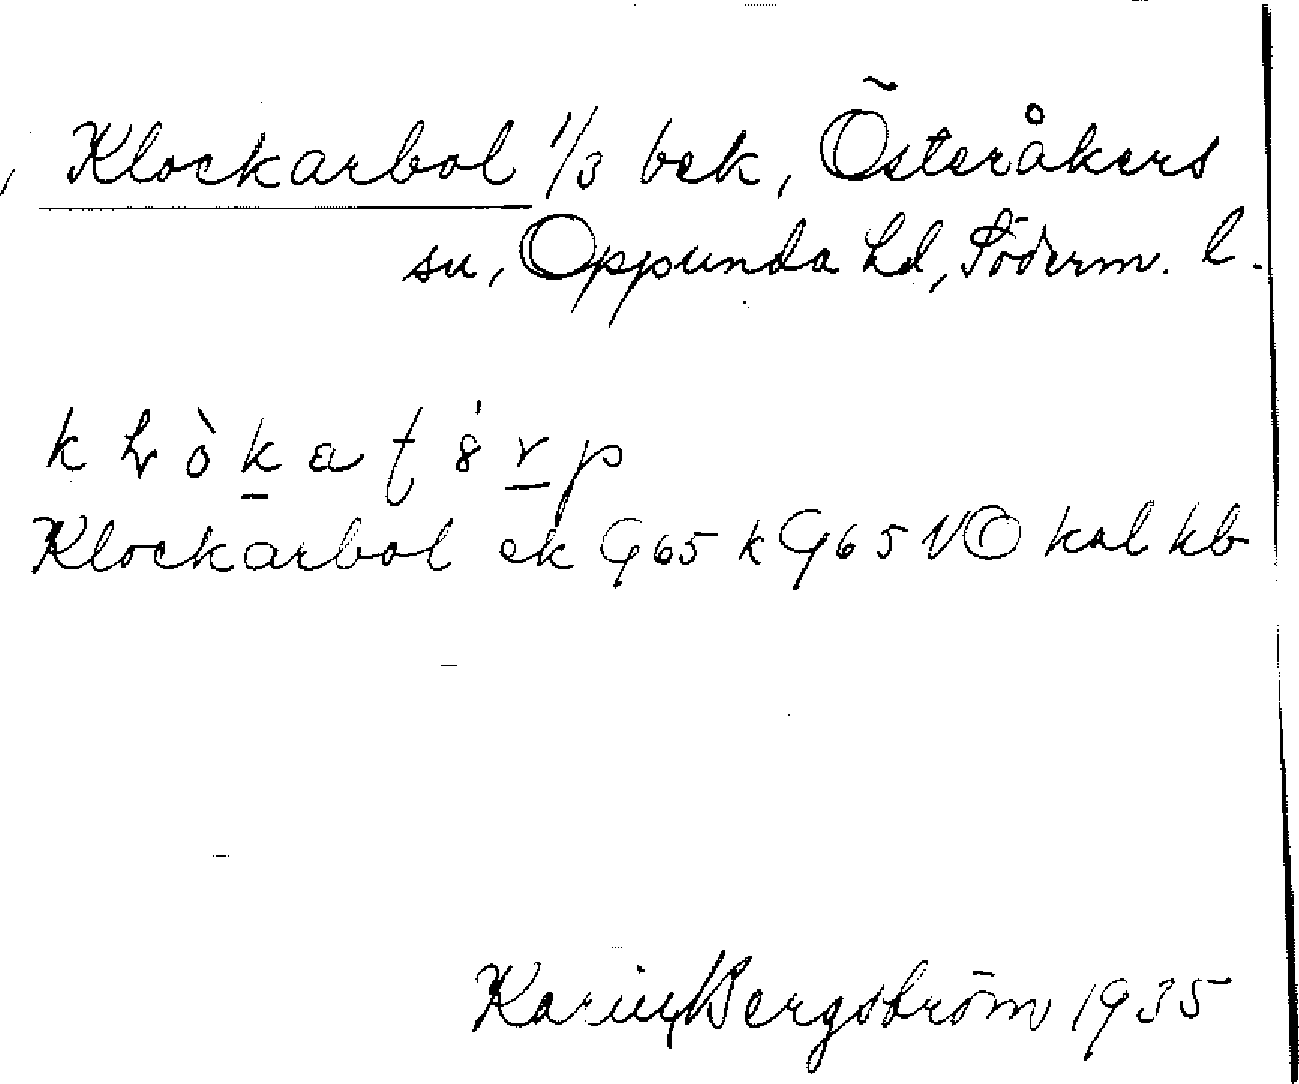 Klockarbol 1/3 bek, Österåkers
sn, Oppunda hd, Söderm. l.
k l ò k a t ö́ r p
Klockarbol ek G65 k G65 VO kal kb
Karin Bergström 1935